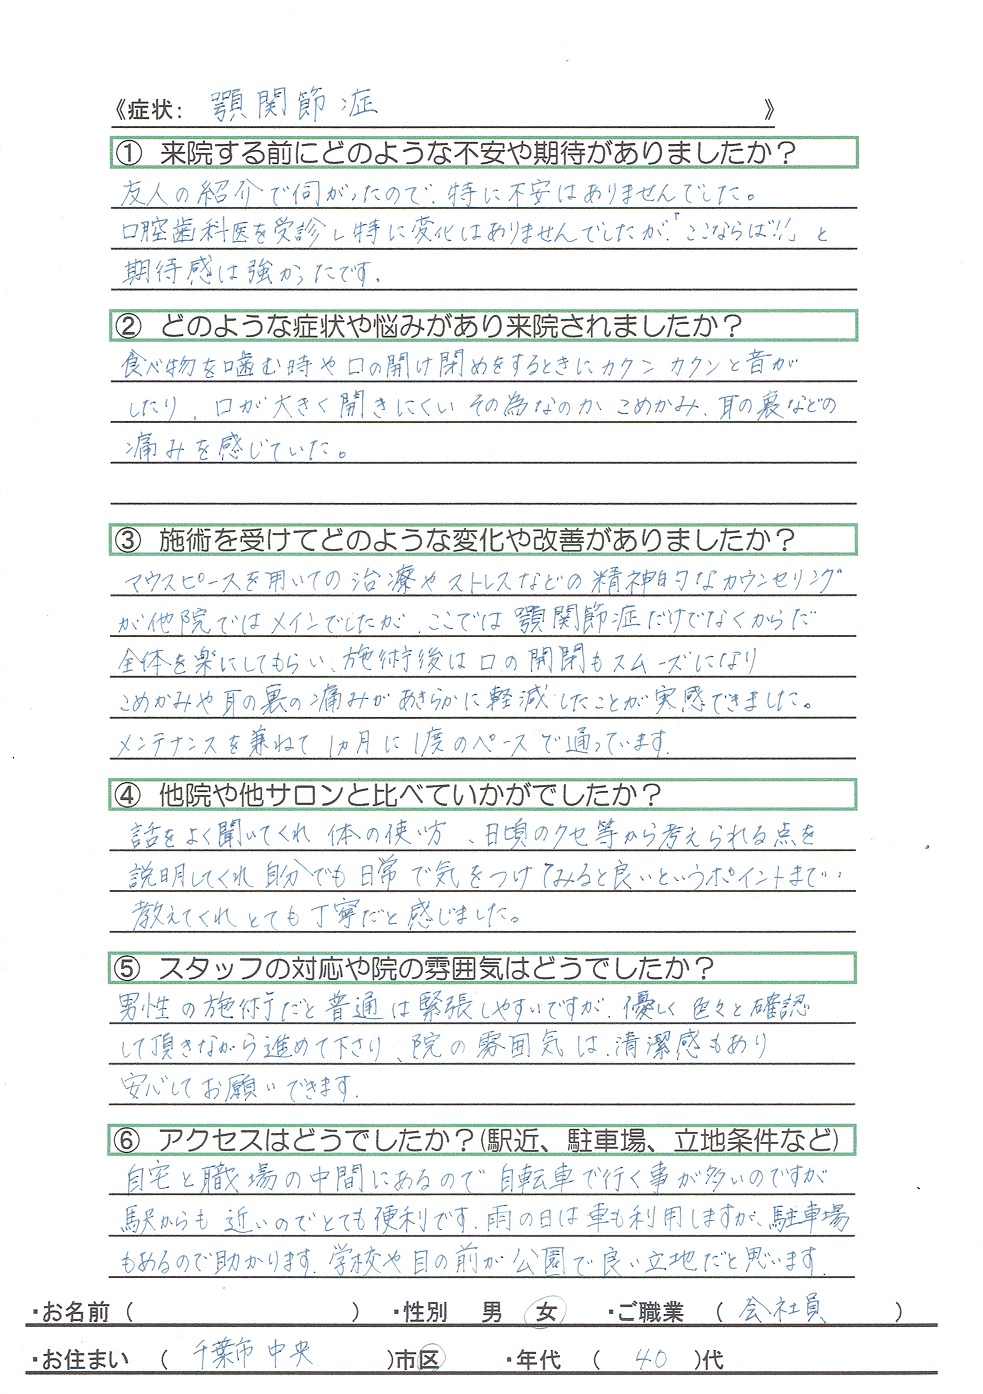 《症状: 顎関節症 》
① 来院する前にどのような不安や期待がありましたか？
友人の紹介で伺がったので、特に不安はありませんでした。
口腔歯科医を受診し特に変化はありませんでしたが、「ここならば!!」と
期待感は強かったです.
② どのような症状や悩みがあり来院されましたか？
食べ物を噛む時や口の開け閉めをするときにカクン カクンと音が
したり、口が大きく開きにくい その為なのか こめかみ、耳の裏などの
痛みを感じていた。
③ 施術を受けてどのような変化や改善がありましたか？
マウスピースを用いての治療やストレスなどの精神的なカウンセリング
が他院ではメインでしたが、ここでは顎関節症だけでなくからだ
全体を楽にしてもらい、施術後は口の開閉もスムーズになり
こめかみや耳の裏の痛みがあきらかに軽減したことが実感できました。
メンテナンスを兼ねて 1ヵ月に1度のペースで通っています.
④ 他院や他サロンと比べていかがでしたか？
話をよく聞いてくれ 体の使い方、日頃のクセ等から考えられる点を
説明してくれ 自分でも日常で気をつけてみると良いというポイントまで‥
教えてくれ とても丁寧だと感じました。
⑤ スタッフの対応や院の雰囲気はどうでしたか？
男性の施術だと普通は緊張しやすいですが、優しく色々と確認
して頂きながら進めて下さり、院の雰囲気は、清潔感もあり
安心してお願いできます.
⑥ アクセスはどうでしたか？(駅近、駐車場、立地条件など)
自宅と職場の中間にあるので自転車で行く事が多いのですが
駅からも近いのでとても便利です. 雨の日は車も利用しますが、駐車場
もあるので助かります. 学校や目の前が公園で良い立地だと思います.
・お名前（ ） ・性別 男 女 ・ご職業 （ 会社員 ）
・お住まい （ 千葉市中央 ）市区 ・年代 （ 40 ）代